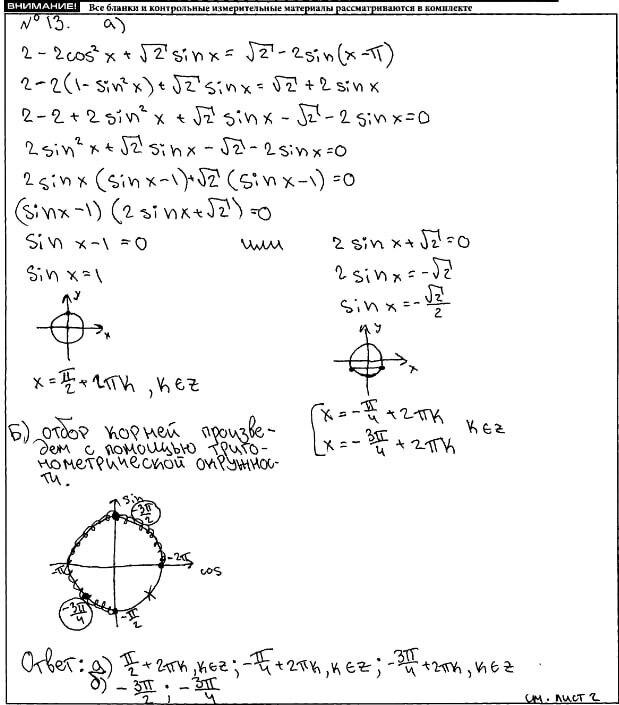 ВНИМАНИЕ! Все бланки и контрольные измерительные материалы рассматриваются в комплекте
№ 13. а)
2 - 2cos²x + √2 sinx = √2 - 2sin(x-π)
2 - 2(1 - sin²x) + √2 sinx = √2 + 2sinx
2 - 2 + 2sin²x + √2 sinx - √2 - 2sinx = 0
2sin²x + √2 sinx - √2 - 2sinx = 0
2sinx(sinx-1) + √2(sinx-1) = 0
(sinx-1)(2sinx+√2) = 0
sin x - 1 = 0 или 2sinx + √2 = 0
sin x = 1
2sinx = -√2
sinx = -√2/2
y
x
y
x
x = π/2 + 2πk, k∈Z
x = -π/4 + 2πk
x = -3π/4 + 2πk
k∈Z
Б) отбор корней произве-
дем с помощью триго-
нометрической окружнос-
ти.
sin
-3π/2
-π
-2π
cos
-3π/4
-π/2
Ответ: а) π/2 + 2πk, k∈Z; -π/4 + 2πk, k∈Z; -3π/4 + 2πk, k∈Z
б) -3π/2; -3π/4
см. лист 2